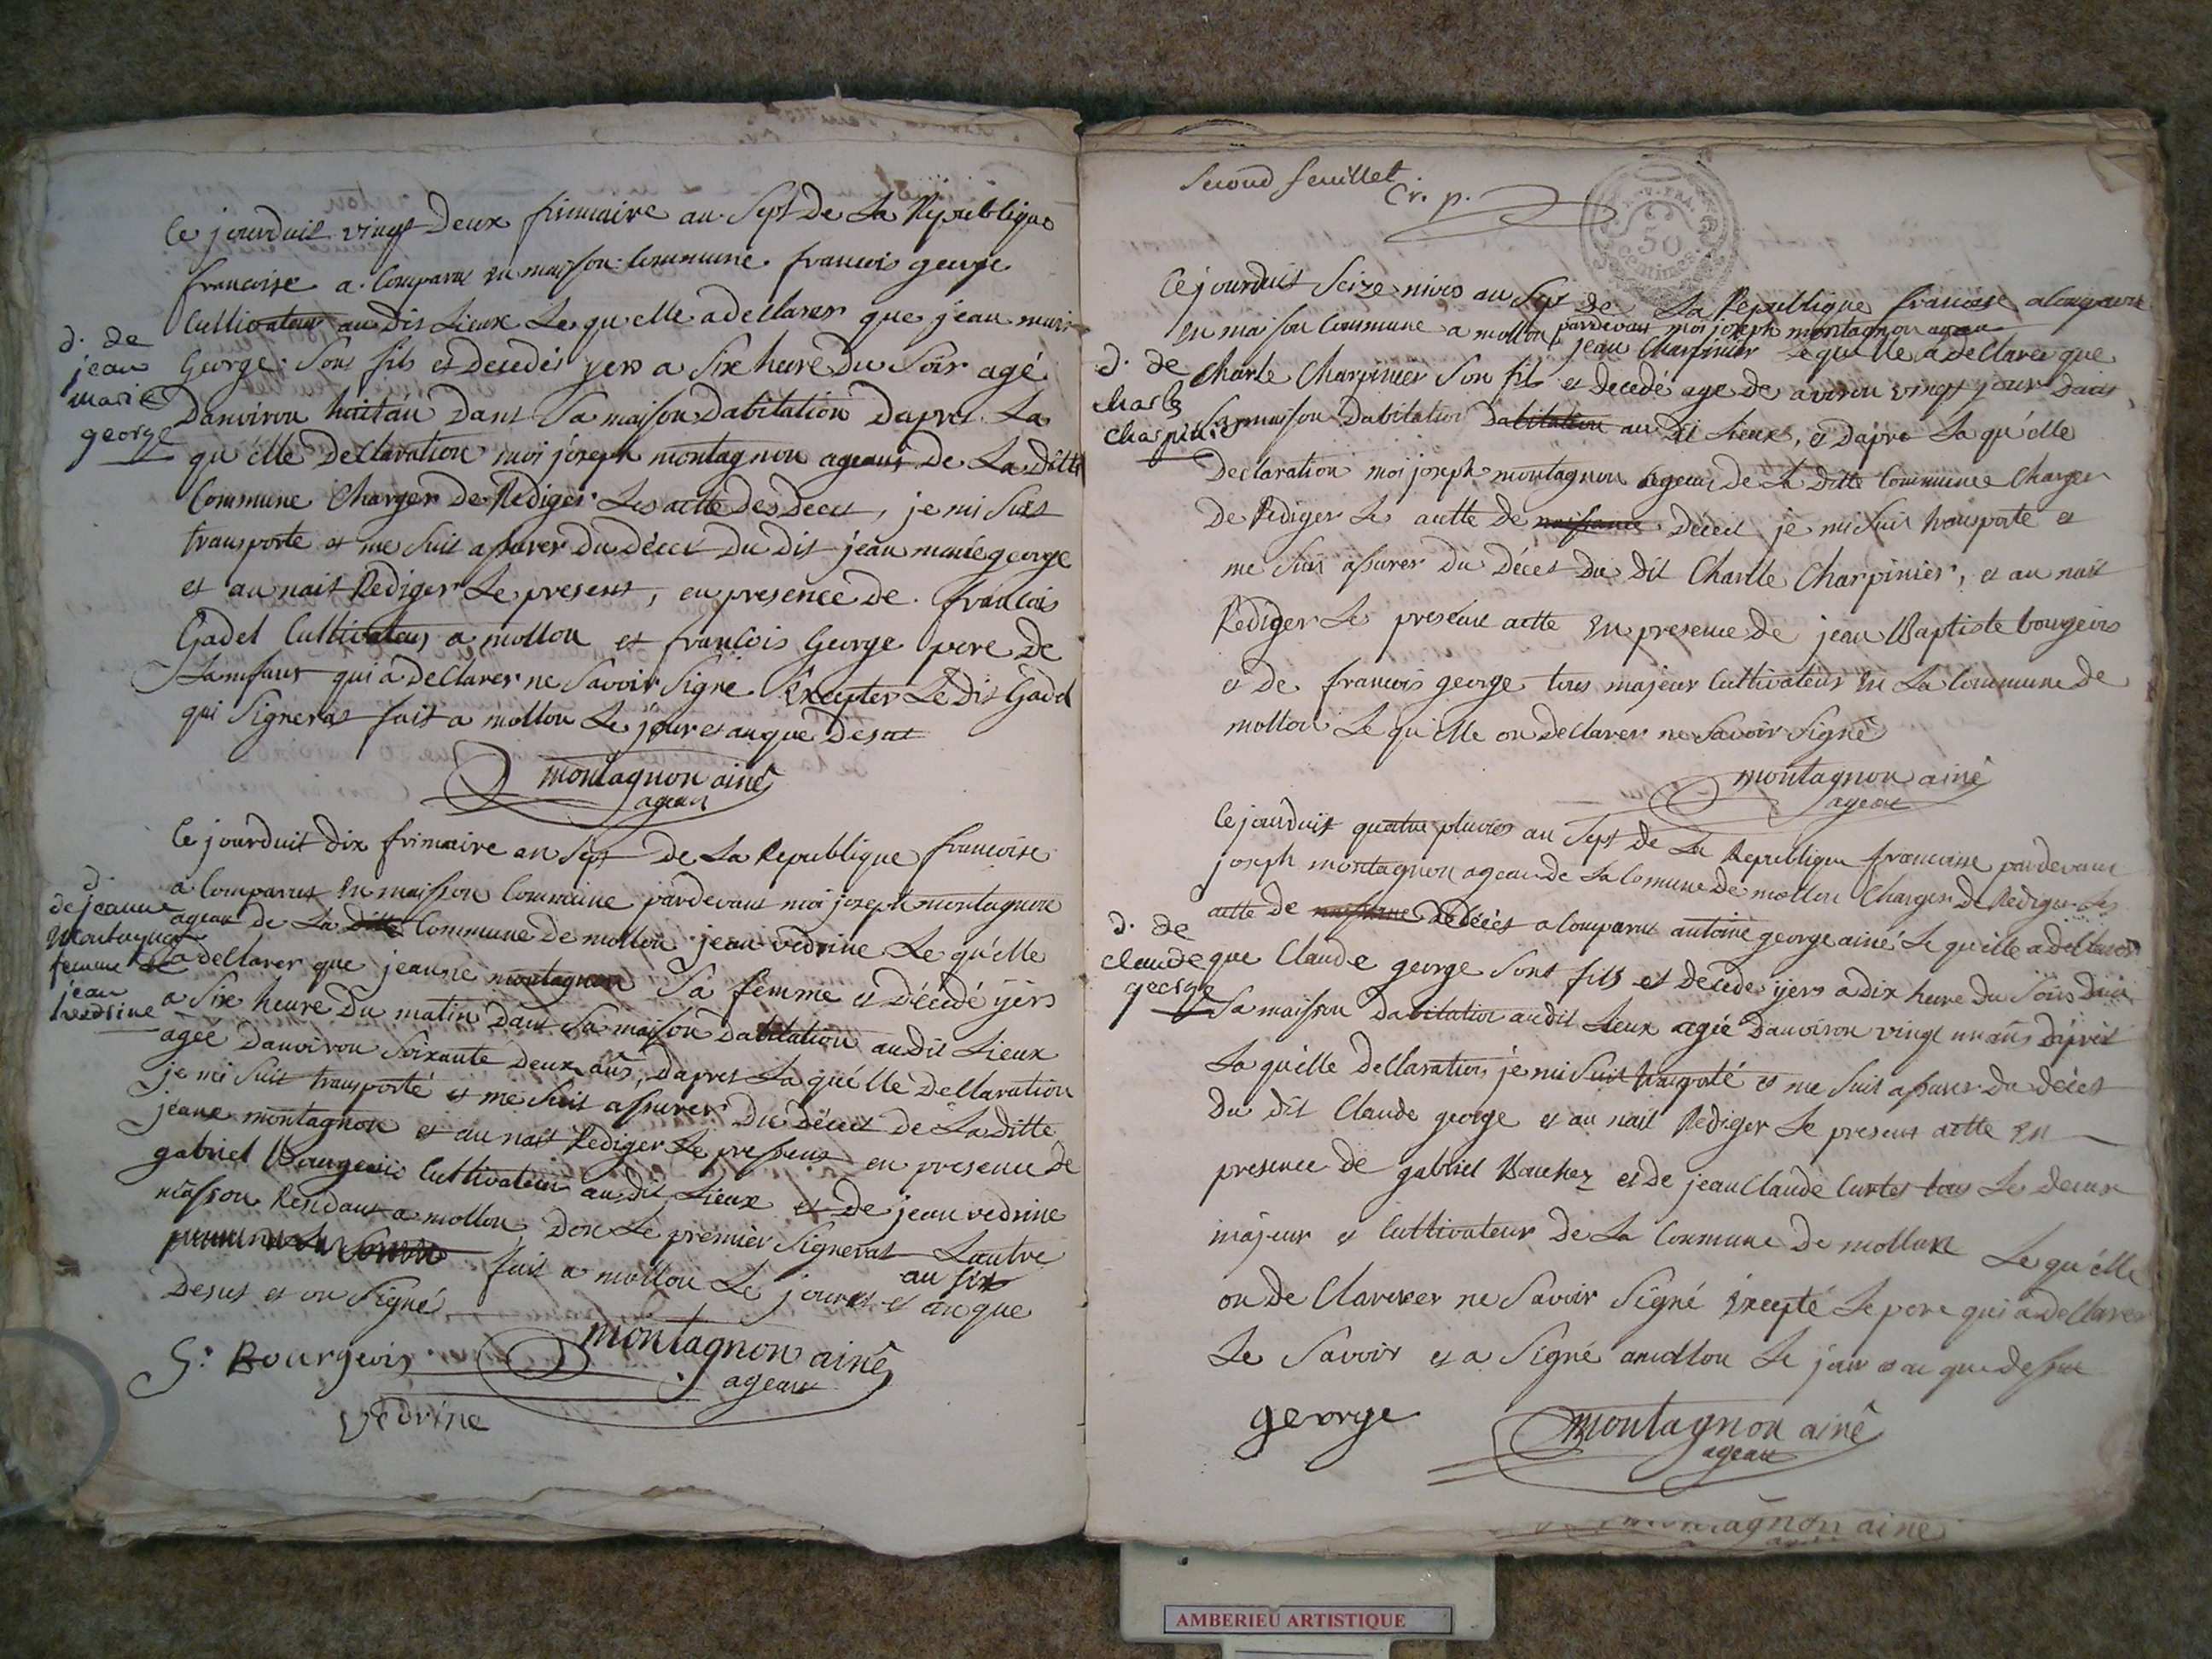 Ce jourduit vingt Deux frimaire an Sept De La Republique
francoise a Comparut en maison Commune francois george
Cultivateur au dis Lieux Le qu'elle a declarer que jean marie
d. de
jean
marie
george
George Sons fils et Decedés yers a Six heure Du Soir agé
Danviron huit an Dans Sa maison Dabitation Dapres La
qu'elle Declaration moi joseph montagnon ageant De La ditte
Commune Charger De Rediger Les actte des Deces, je mi Suis
transporte et me Suit assurer Du Déces Du Dit jean marie george
et au nait Rediger Le present, en presence De francois
Gadel Cultivateur a mollon et francois George pere De
Lamfant qui a Declarer ne Savoir Signe Excepter Le Dit Gadel
qui Signerat fait a mollon Le jour et an que Desut
montagnon ainé
ageant
Ce jourduit Dix frimaire an Sept De La Republique francoise
d.
de jeanne
Montagnon
femme de
jean
Vedrine
a Comparut en maisson Commune pardevant moi joseph montagnon
ageant de La Ditte Commune De mollon jean vedrine Le qu'elle
a dellarer que jeanne montagnon Sa femme et Décédé yers
a Six heure Du matin Dant Sa maison Dabitation au dit Lieux
ageé Danviron Soixante Deux ans, Dapres La quélle Dellaration
je mi Suit transporté et me Suit assurer Du Déces De La Ditte
jeane montagnon et au nait Rediger Le pressent en presence De
gabriel Bourgeois Cultivateur au dit Lieux et De jean vedrine
masson Residant a mollon, Don Le premier Signerat Lautre
au six
fait a mollon Le jour et an que
Desus et on Signé
G. Bourgeois montagnon ainé
ageant
vedrine
Second feuillet
Cr. p.
50
Centimes
Ce jourduit Seize nivos an Sept de La Republique francoise a Comparu
en maison Commune a mollon pardevant moi joseph montagnon agean
jean Charpinier Le qu'elle a declarer que
d. de
charle
charpinier
Charle Charpinier Son fils et decedé age de anviron vingt jour Dans
Sa maison Dabitation Dabitation au Dit Lieux, et Dapre La qu'elle
Declaration moi joseph montagnon ageant de La ditte Commune Charger
De Rediger Le actte de naissance Décect je mi Suit transporte et
me Suis assurer Du Déces Du Dit Charlle Charpinier, et au nait
Rediger Le present actte en presence De jean Baptiste bourgeois
et De francois george tous majeur Cultivateur en La Commune De
mollon Le qu'elle on Declarer ne Savoir Signé
montagnon ainé
ageant
Ce jourduit quatre pluvios an Sept de La Republique francoise pardevant
joseph montagnon ageant de La Comune de mollon Charger De Rediger Les
d. de
claude
george
actte de naissance de Déces a Comparut antoine george ainé Le qu'elle a dellarer
que Claude george Sont fils et decede yers a dix heure Du Soir Dans
Sa maisson Dabitation au dit Lieux ageé Danviron vingt un ans Dáprés
La qu'elle Dellaration je mi Suit transporté et me Suit assurer Du Déces
Du dit Claude george et au nait Rediger Le present actte en
presence de gabriel Bouchez et de jean Claude Curtet tous Le deux
majeur et Cultivateur De La Commune De mollon Le qu'elle
on de Clarerer ne Savoir Signé Excepté Le pere qui a dellarer
Le Savoir et a Signé amollon Le jour et an que dessus
george montagnon ainé
ageant
montagnon ainé
AMBERIEU ARTISTIQUE